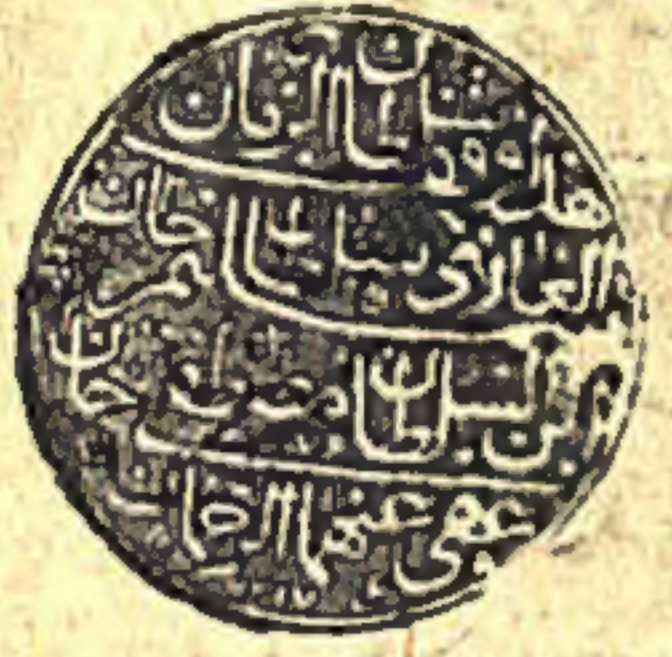 هذا وقف سلطان الزمان
الغازي سلطان سليم خان
بن السلطان خان
عفى عنهما الرحمان